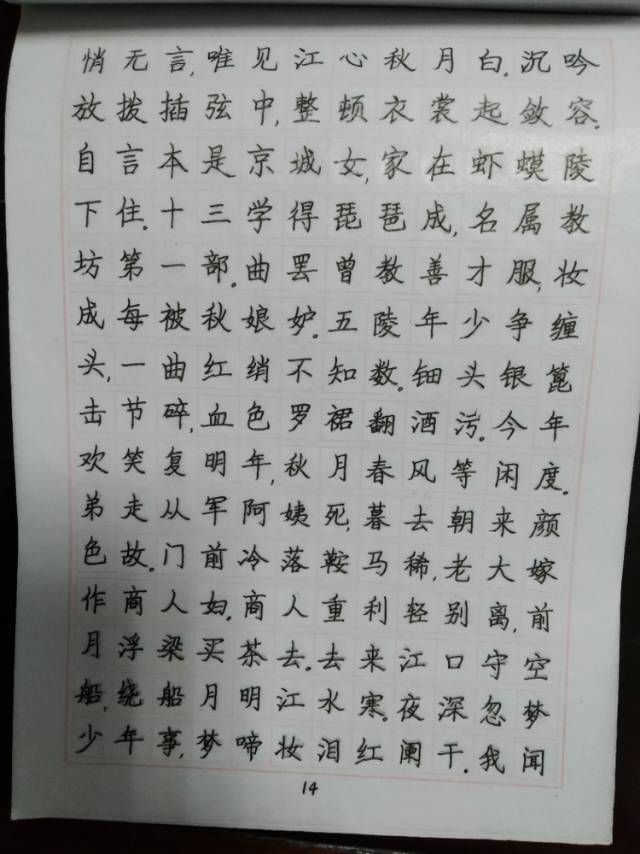 悄无言,唯见江心秋月白。沉吟
放拨插弦中,整顿衣裳起敛容。
自言本是京城女,家在虾蟆陵
下住。十三学得琵琶成,名属教
坊第一部。曲罢曾教善才服,妆
成每被秋娘妒。五陵年少争缠
头,一曲红绡不知数。钿头银篦
击节碎,血色罗裙翻酒污。今年
欢笑复明年,秋月春风等闲度。
弟走从军阿姨死,暮去朝来颜
色故。门前冷落鞍马稀,老大嫁
作商人妇。商人重利轻别离,前
月浮梁买茶去。去来江口守空
船,绕船月明江水寒。夜深忽梦
少年事,梦啼妆泪红阑干。我闻
14